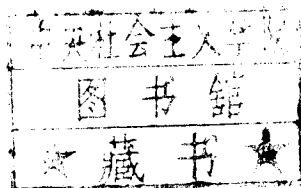 社会主义学院
图书馆
藏书